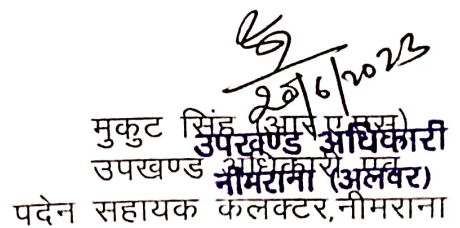 20/6/2023
मुकुट सिंह (आर.ए.एस)
उपखण्ड अधिकारी
उपखण्ड अधिकारी एवं
नीमराना (अलवर)
पदेन सहायक कलक्टर,नीमराना